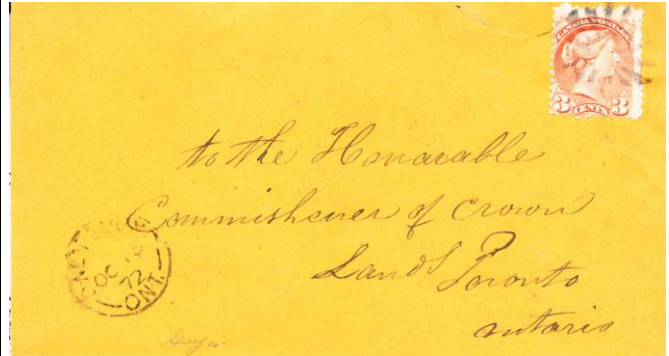 CANADA POSTAGE
3 CENTS 3
to the Honarable
Commishener of Crown
Lands Toronto
ontario
OC
72
ONT